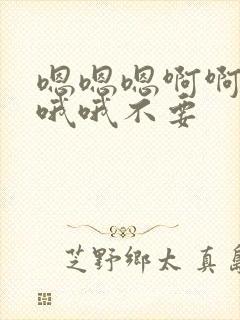 嗯嗯嗯啊啊
哦哦不要
芝野鄉太 真島